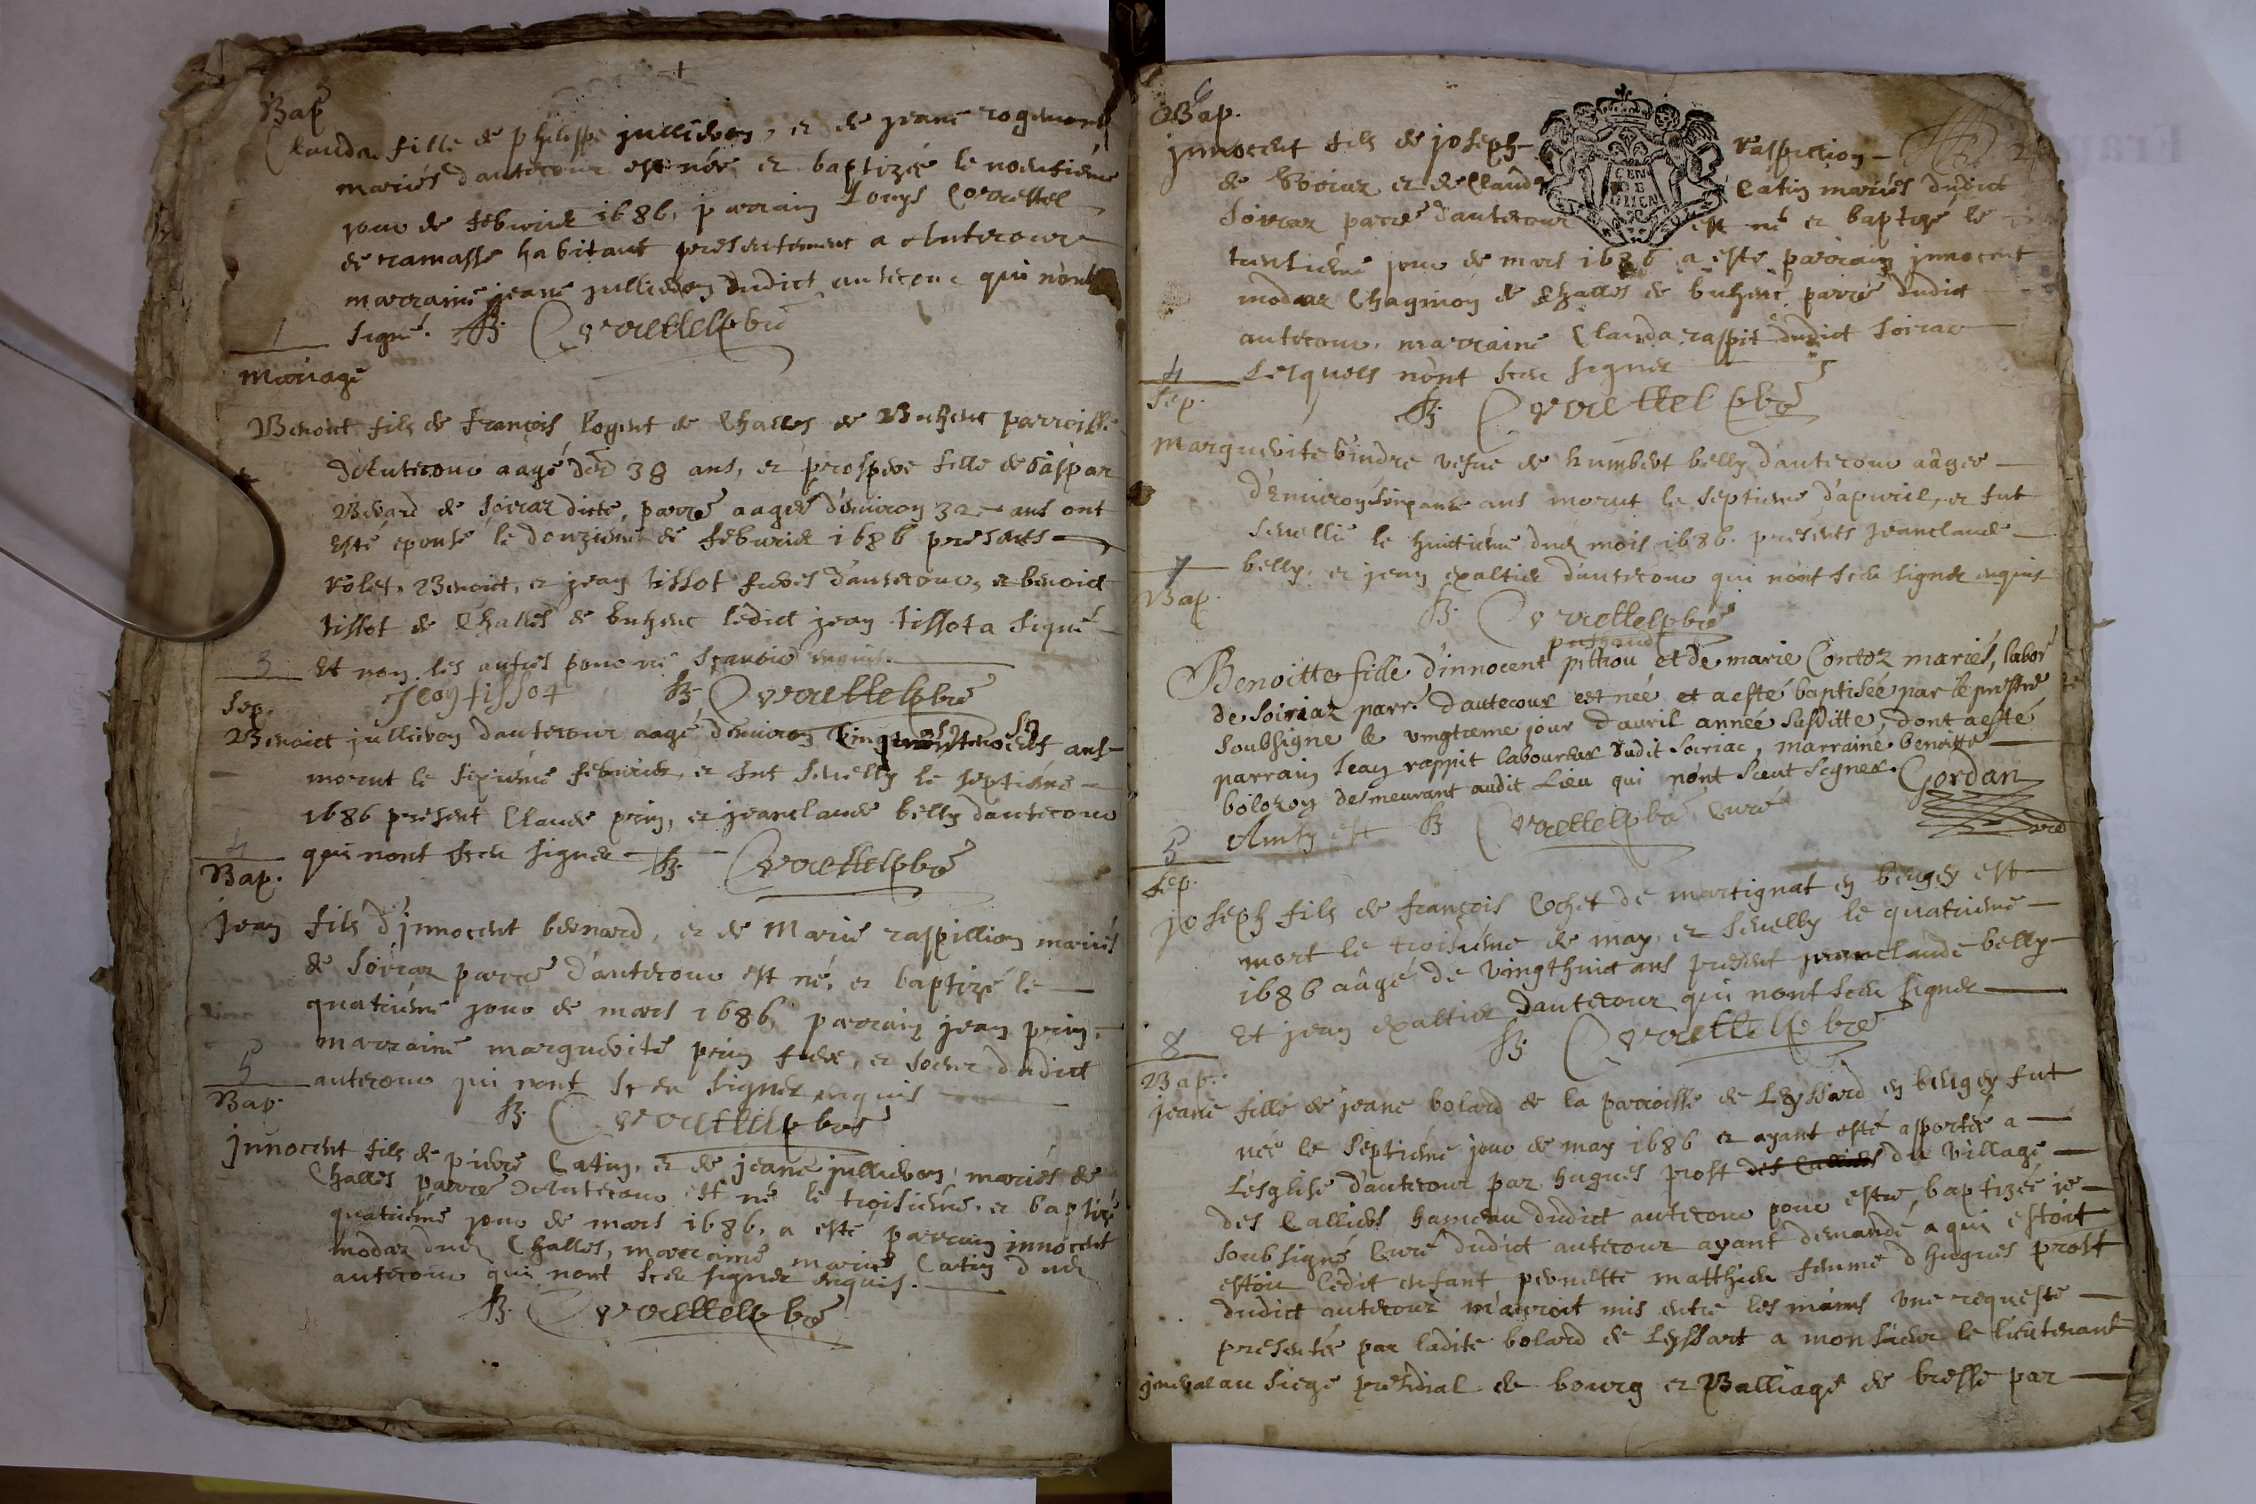 Bap
Clauda fille de philippe jullievon, et de jeane rogemond
mariés d'autecour est née et baptizée le neufvieme
jour de febvrier 1686, parrain Louys Correttel
de ramasse habitant presentement a Autecour
marraine jeane jullievon dudict autecour qui n'ont
signé. B. Correttel pbre
1
Mariage
Benoict fils de françois logent de Challes de Buhenc parroisse
d'Autecour aagé de 38 ans, et prospere fille de Gaspar
Bevard de soiraz dicte parre aagée d'environ 32 ans ont
esté épousé le douzieme de febvrier 1686 presents
rolet, Benoict, et jean tissot freres d'autecour, et benoict
tissot de Challes de buhenc ledict jean tissot a signé
Et non les autres pour ne sçavoir enquis.
3
Jean tissot B. Correttel pbre
Sep.
Benoict jullievon d'autecour aagé d'environ ans
mourut le sixieme febvrier, et fut sevelly le septieme
1686 present Claude prin, et jeanclaude belly d'autecour
qui nont sceu signer B. Correttel pbre
4
Bap.
jean fils d'jnnocent bernard, et de Marie raspillion mariés
de soiraz parre d'autecour est né, et baptizé le
quatrieme jour de mars 1686, parrain jean prin,
marraine marguerite prin frere, et soeur dudict
autecour qui nont sceu signer enquis
5
B. Correttel pbre
Bap.
jnnocent fils de pierre Catin, et de jeane jullievon, mariés de
Challes parre d'Autecour est né le troisieme, et baptizé
quatrieme jour de mars 1686, a esté parrain innocent
modaz dud. Challes, marraine marie Catin dud.
autecour qui nont sceu signer enquis.
B. Correttel pbre
6
Bap.
jnnocent fils de joseph raspillion
de Soiraz et de Clauda Catin mariés dudict
Soiraz parre d'autecour est né et baptizé le
jour de mars 1686 a esté parrain jnnocent
modaz Chagnion de Challes de buhenc parre dudict
autecour, marraine Clauda raspit dudict soiraz
Lesquels nont sceu signer
4
B. Correttel pbre
Sep.
Marguerite Gindre vefve de humbert belly d'autecour aâgée
d'environ ans morut le septieme d'apvril, et fut
sevellie le huitieme dud. mois 1686. presents Jeanclaude
belly, et jean exaltier d'autecour qui nont sceu signer enquis
7
B. Correttel pbre
Bap.
Benoitte fille d'innocent pittiou et de marie Contoz mariés, labor
de soiriaz parr. d'autecour est née et a esté baptisée par le prestre
soubsigne le vingtieme jour d'avril année susditte, dont a esté
parrain Jean rappit laboureur dudit soiriac, marraine benoitte
bolozon desmeurant audit Lieu qui nont sceut signer. Gordan
Ainsy est B. Correttel pbre Curé
5
Sep.
joseph fils de françois Cochet de martignat en beugey est
mort le troisieme de may, et sevelly le quatrieme
1686 aâgé de vingthuict ans present jeanclaude belly
Et jean exaltier d'autecour qui nont sceu signer
8
B. Correttel pbre
Bap.
jeane fille de jeane bolard de la parroisse de Leyssard en beugey fut
née le septieme jour de may 1686 et ayant esté apportée a
L'esglise d'autecour par hugues prost du village
des Calliers hameau dudict autecour pour estre baptizée je
soubsigné Curé dudict autecour ayant demandé a qui estoit
estoit ledit enfant pernette matthieu femme d'hugues prost
dudict autecour m'auroit mis entre les mains une requeste
presentée par ladite bolard de Leyssart a monsieur le lieutenant
general au siege presidial de bourg et Balliage de bresse par